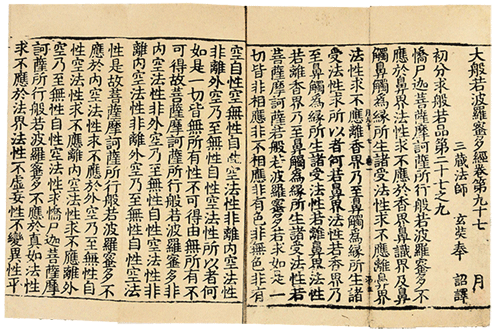 大般若波羅蜜多經卷第九十七 月
三藏法師 玄奘奉 詔譯
初分求般若品第二十七之九
憍尸迦菩薩摩訶薩所行般若波羅蜜多不
應於鼻界法性求不應於香界鼻識界及鼻
觸鼻觸為緣所生諸受法性求不應離鼻界
法性求不應離香界乃至鼻觸為緣所生諸
受法性求所以者何若鼻界法性若香界乃
至鼻觸為緣所生諸受法性若離鼻界法性
若離香界乃至鼻觸為緣所生諸受法性若
菩薩摩訶薩若般若波羅蜜多若求如是一
切皆非相應非不相應非有色非無色非有
空自性空無性自性空法性非離內空法性
非離外空乃至無性自性空法性所以者何
如是一切皆無所有性不可得由無所有不
可得故菩薩摩訶薩所行般若波羅蜜多非
內空法性非外空乃至無性自性空法性非
離內空法性非離外空乃至無性自性空法
性是故菩薩摩訶薩所行般若波羅蜜多不
應於內空法性求不應於外空乃至無性自
性空法性求不應離內空法性求不應離外
空乃至無性自性空法性求憍尸迦菩薩摩
訶薩所行般若波羅蜜多不應於真如法性
求不應於法界法性不虛妄性不變異性平